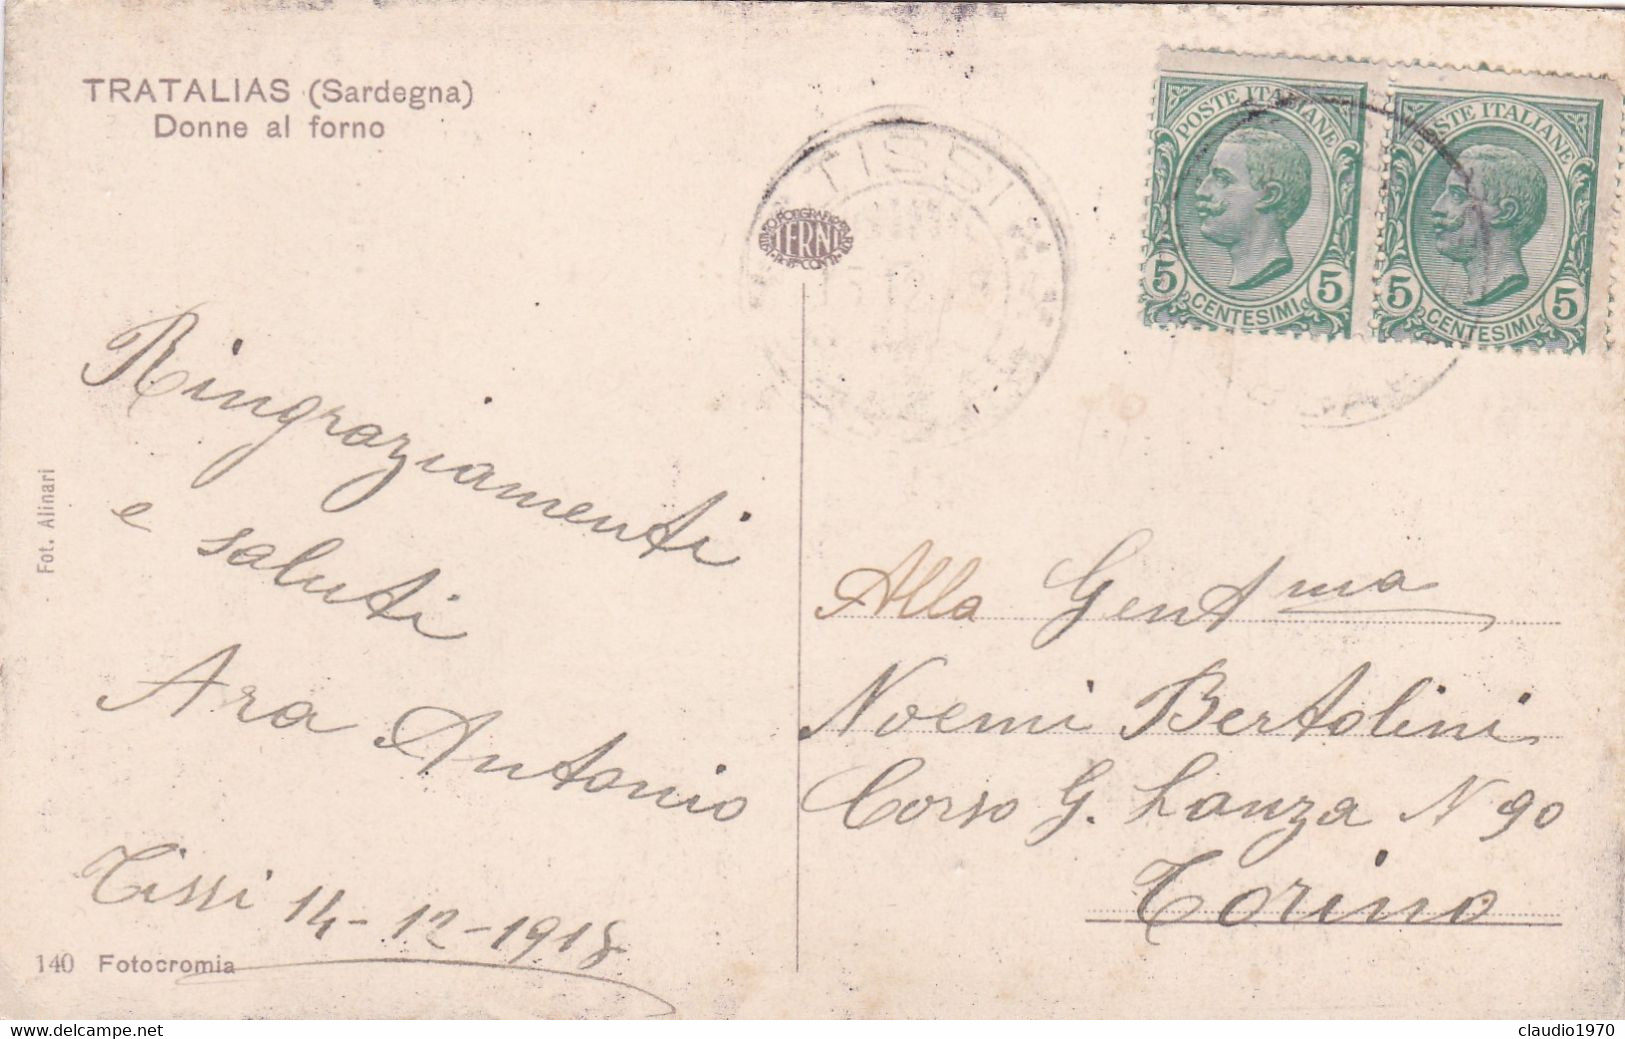 TRATALIAS (Sardegna)
Donne al forno
TISSI
TERNI
POSTE ITALIANE
5 5
CENTESIMI
POSTE ITALIANE
5 5
CENTESIMI
Ringraziamenti
e saluti
Ara Antonio
Tissi 14-12-1918
Fot. Alinari
140 Fotocromia
Alla Gentma
Noemi Bertolini
Corso G. Lanza N 90
Torino
claudio1970